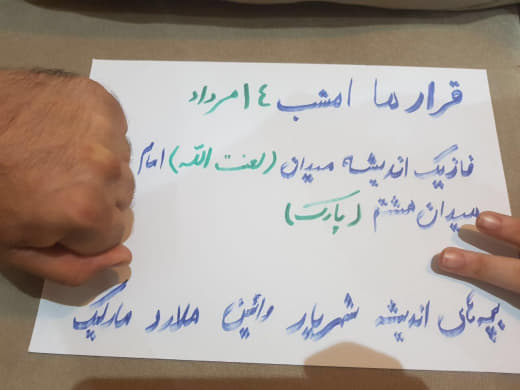 قرار ما امشب ١٤مرداد
فازیک اندیشه میدان (لعنت الله) امام
میدان هشتم (پارک)
بچه های اندیشه شهریار وائین ملارد مارلیک